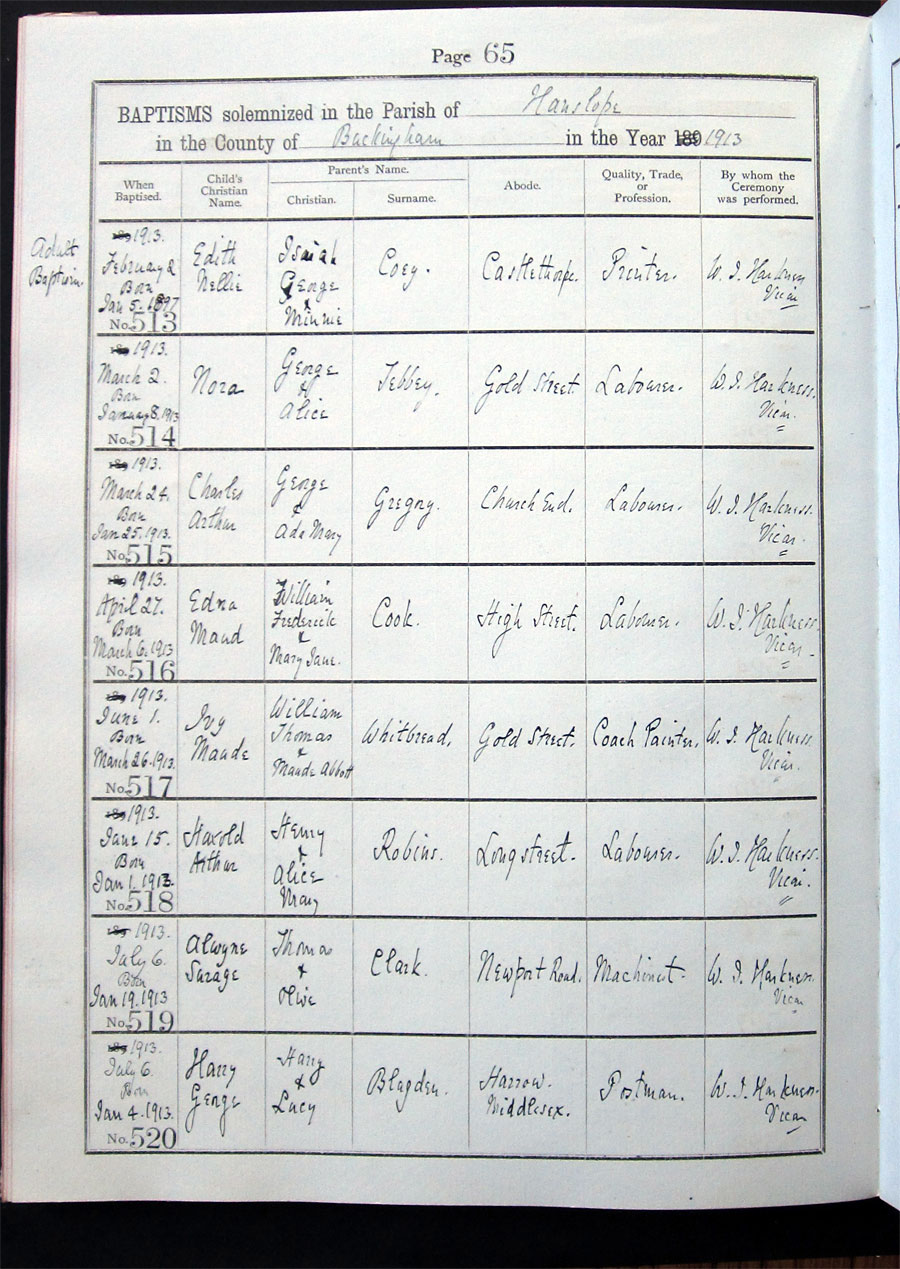 Page 65
BAPTISMS solemnized in the Parish of Hanslope
in the County of Buckingham in the Year 189 1913
When Baptised.
Child's Christian Name.
Parent's Name.
Christian.
Surname.
Abode.
Quality, Trade, or Profession.
By whom the Ceremony was performed.
Adult
Baptism.
189 1913.
February 2
Born
Jan 5. 1897
No. 513
Edith
Nellie
Isaiah
George
&
Minnie
Coey.
Castlethorpe.
Printer.
W. J. Harkness
Vicar
189 1913.
March 2.
Born
January 8. 1913
No. 514
Nora
George
&
Alice
Tebbey.
Gold Street
Labourer.
W. J. Harkness.
Vicar.
189 1913.
March 24.
Born
Jan 25. 1913.
No. 515
Charles
Arthur
George
&
Ada Mary
Gregory.
Church End.
Labourer.
W. J. Harkness.
Vicar.
189 1913.
April 27.
Born
March 6. 1913
No. 516
Edna
Maud
William
Frederick
&
Mary Jane.
Cook.
High Street.
Labourer.
W. J. Harkness.
Vicar.
189 1913.
June 1.
Born
March 26. 1913.
No. 517
Ivy
Maude
William
Thomas
&
Maude Abbott
Whitbread.
Gold Street.
Coach Painter.
W. J. Harkness.
Vicar.
189 1913.
June 15.
Born
Jan 1. 1913.
No. 518
Harold
Arthur
Henry
&
Alice
Mary
Robins.
Longstreet.
Labourer.
W. J. Harkness.
Vicar.
189 1913.
July 6.
Born
Jan 19. 1913
No. 519
Alwyne
Savage
Thomas
&
Olive
Clark.
Newport Road.
Machinist.
W. J. Harkness.
Vicar
189 1913.
July 6.
Born
Jan 4. 1913.
No. 520
Harry
George
Harry
&
Lucy
Blagden.
Harrow.
Middlesex.
Postman.
W. J. Harkness.
Vicar